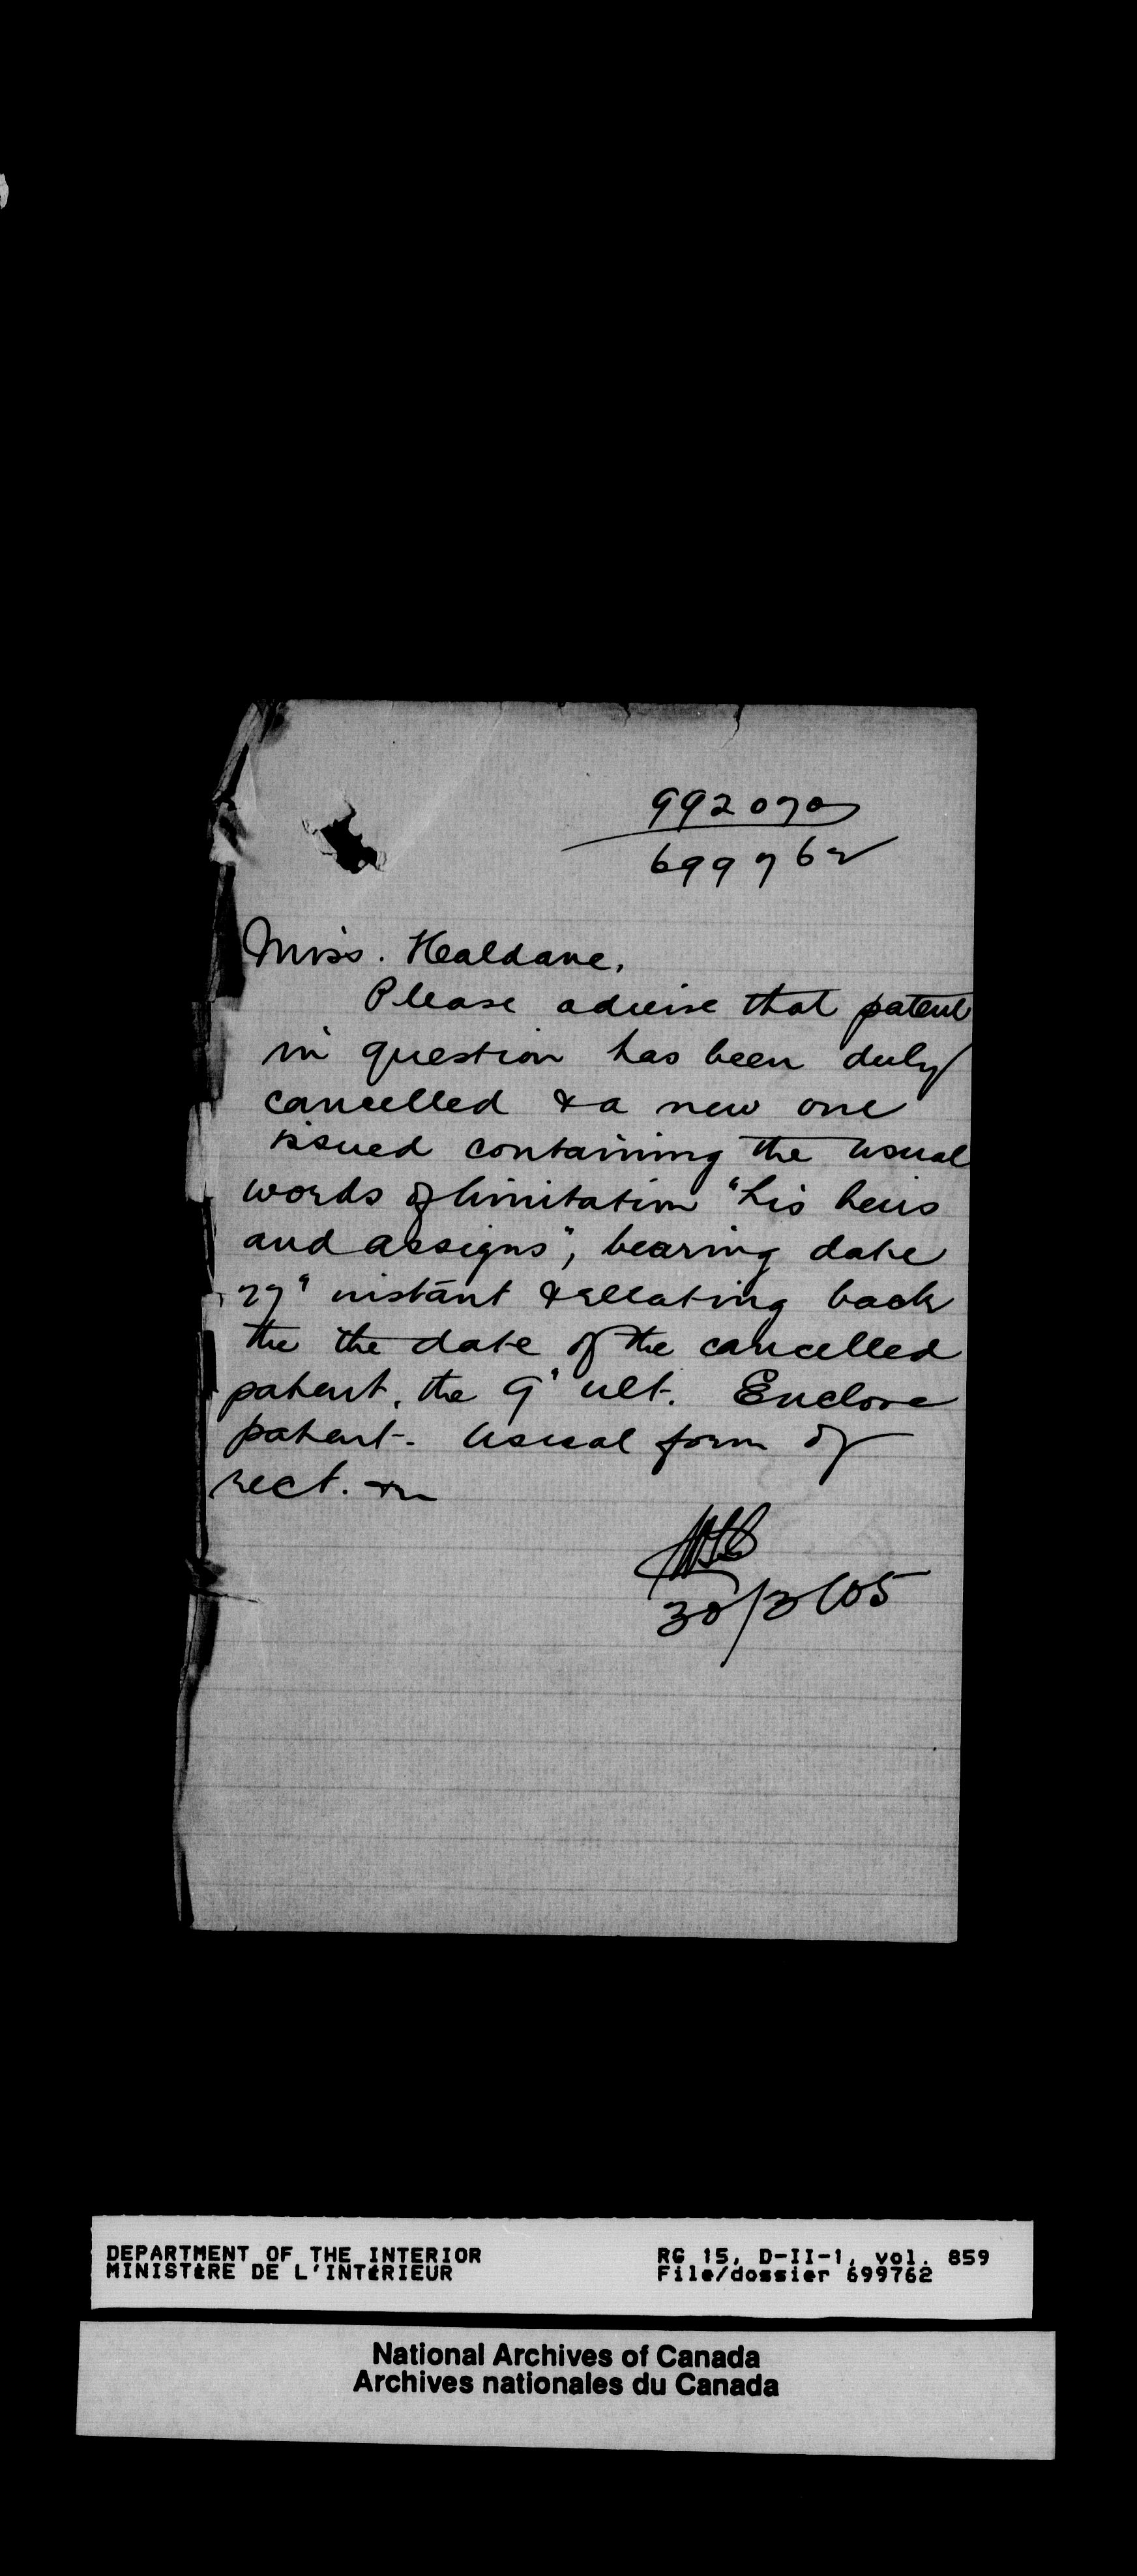 992070
699762
Miss. Healdane,
Please advise that patent
in question has been duly
cancelled & a new one
issued containing the usual
words of limitation "his heirs
and assigns", bearing date
27" instant & relating back
the the date of the cancelled
patent, the 9" ult. Enclose
patent. Usual form of
rect. &c
30/3/05
DEPARTMENT OF THE INTERIOR
MINISTÈRE DE L'INTÉRIEUR
RG 15, D-II-1, vol. 859
File/dossier 699762
National Archives of Canada
Archives nationales du Canada